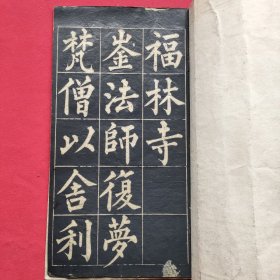 福林寺
崟法師復夢
梵僧以舍利